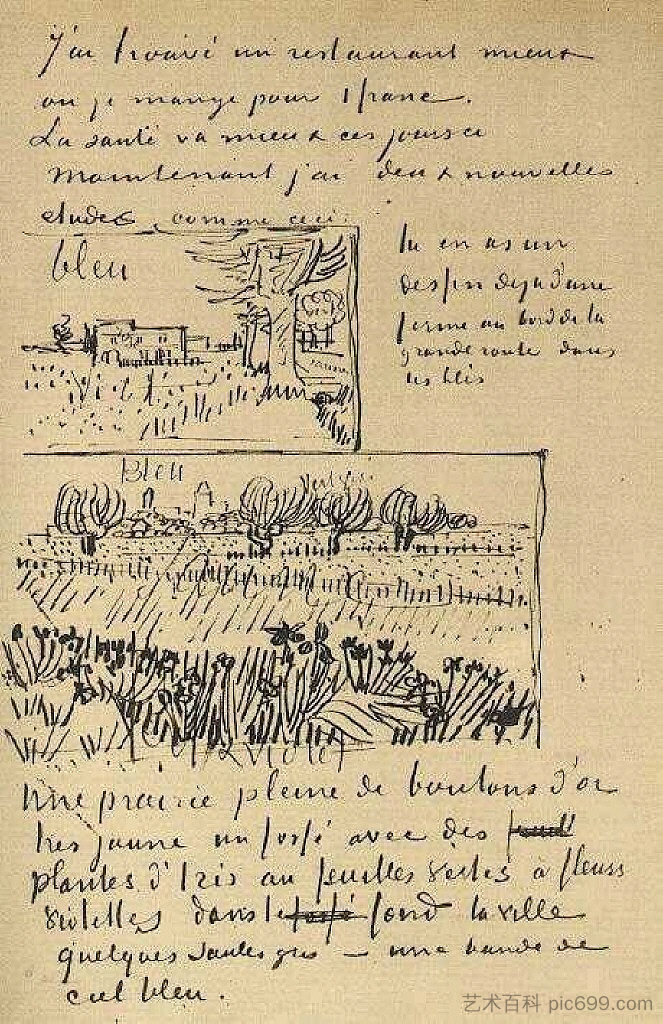 J'ai trouvé un restaurant mieux
ou je mange pour 1 franc.
La santé va mieux ces jours ci
Maintenant j'ai deux nouvelles
etudes comme ceci:
bleu
vert
tu en as un
dessin deja d'une
ferme au bord de la
grande route dans
les blés
Bleu
violet
Une prairie pleine de boutons d'or
tres jaune un fossé avec des
plantes d'Iris au feuilles vertes à fleurs
violettes dans le fossé fond la ville
quelques saules gris – une bande de
ciel bleu.
艺术百科 pic699.com